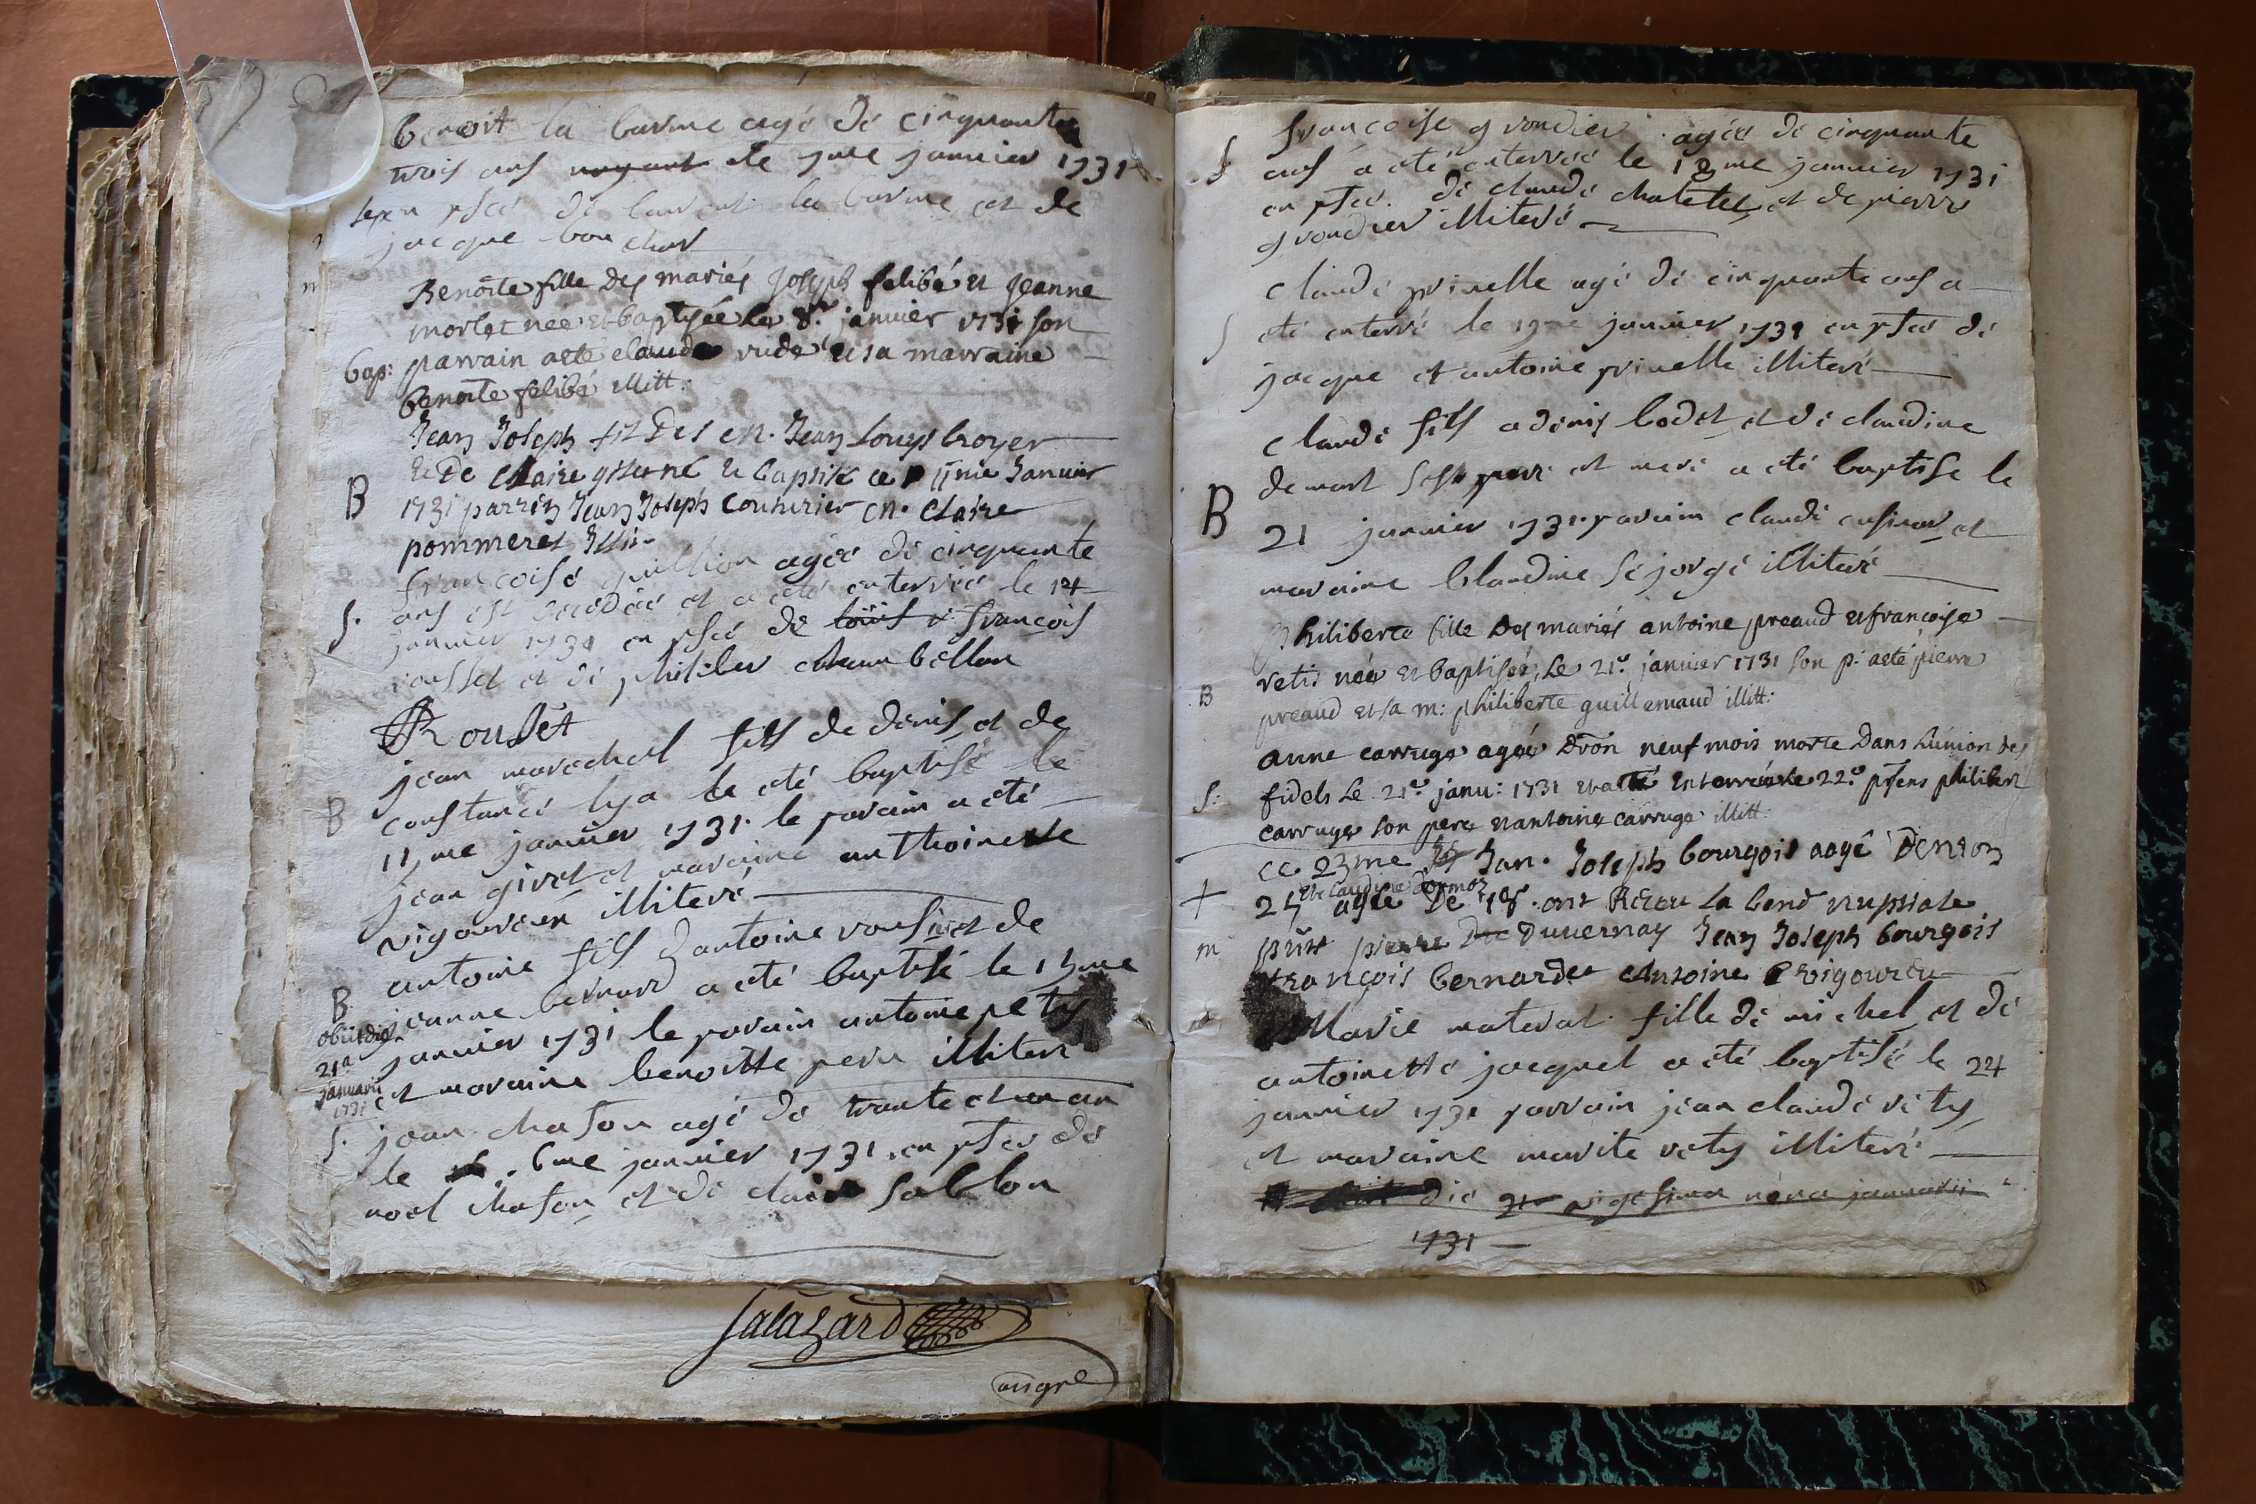 benoit la barme agé de cinquante
trois ans le 7me janvier 1731
en psce de laurent la barme et de
jacque bouchar
Benoite fille des mariés Joseph felibé et Jeanne
morlet née et baptisée le 8e janvier 1731 son
bap: parrain a eté claude rude et sa marraine
benoite felibé illitt:
Jean Joseph fil des en. Jean Louys broyer
B et De Claire et baptisé ce 11me Janvier
1731 parrin Jean Joseph Couturier en. Claire
pommeret Illi.
françoise guillion agée de cinquante
S. ans est decedée et a eté enterrée le 14
janvier 1731 en psce de louis et françois
rousset et de philiber chambellan
Rousset
jean marechal fils de denis et de
B constance lya la eté baptisé le
11me janvier 1731 le parain a eté
jean givet et maraine anthoinette
vigoureux illiteré
antoine fils d antoine rousset de
B jeanne bernard a eté baptisé le 15me
obiit die
janvier 1731 le parain antoine pety
21a
et maraine benoitte peru illiteré
januarii
1731
S. jean chason agé de trante et un an
le 6me janvier 1731 en psce de
noel chason et de claire sablon
Salazard
françoise grondier agée de cinquante
S ans a eté enterrée le 18me janvier 1731
en psce de claude chatelet et de pierre
grondier illiteré
claude prinelle agé de cinquante ans a
S eté enterré le 19me janvier 1731 en psce de
jacque et antoine prinelle illiteré
claude fils a denis bodet et de claudine
demont ses pere et mere a eté baptise le
B 21 janvier 1731 parain claude cusinar et
maraine blandine sejorge illiteré
Philiberte fille Des mariés antoine preaud et françoise
vetis née et baptisée Le 21e janvier 1731 son p: a eté pierre
B preaud et sa m: philiberte guillemaud illitt:
anne carruge agée Dron neuf mois morte Dans Lunion des
S: fidels Le 21e janv: 1731 et a eté Enterrée Le 22e psens philibert
carruge son pere et antoine carruge illitt:
ce 23me Jan. Joseph bourgois aagé Denron
et claudine dormoz
+ 25 agée De 18. ont Receu La bend nuptiale
m pnst pierre Duvernay Jean Joseph bourgois
françois bernardet Antoine vigoureu
Marie materat fille de michel et de
antoinette jacquet a eté baptisé le 24
janvier 1731 parrain jean claude vety
et maraine marite vety illiteré
die 21 vigesima nona januarii
1731